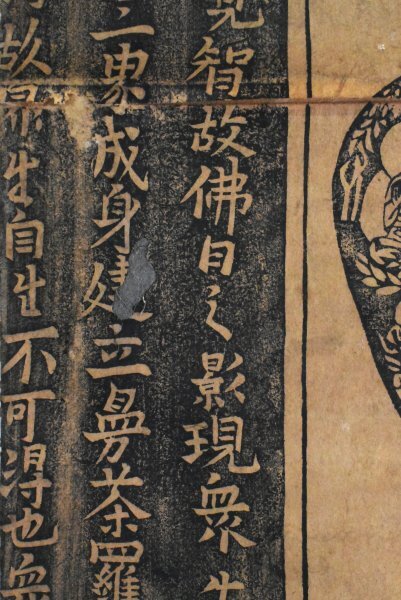 覺智故佛日之影現衆生
三東成身建立曼荼羅
故衆生自生不可得也衆